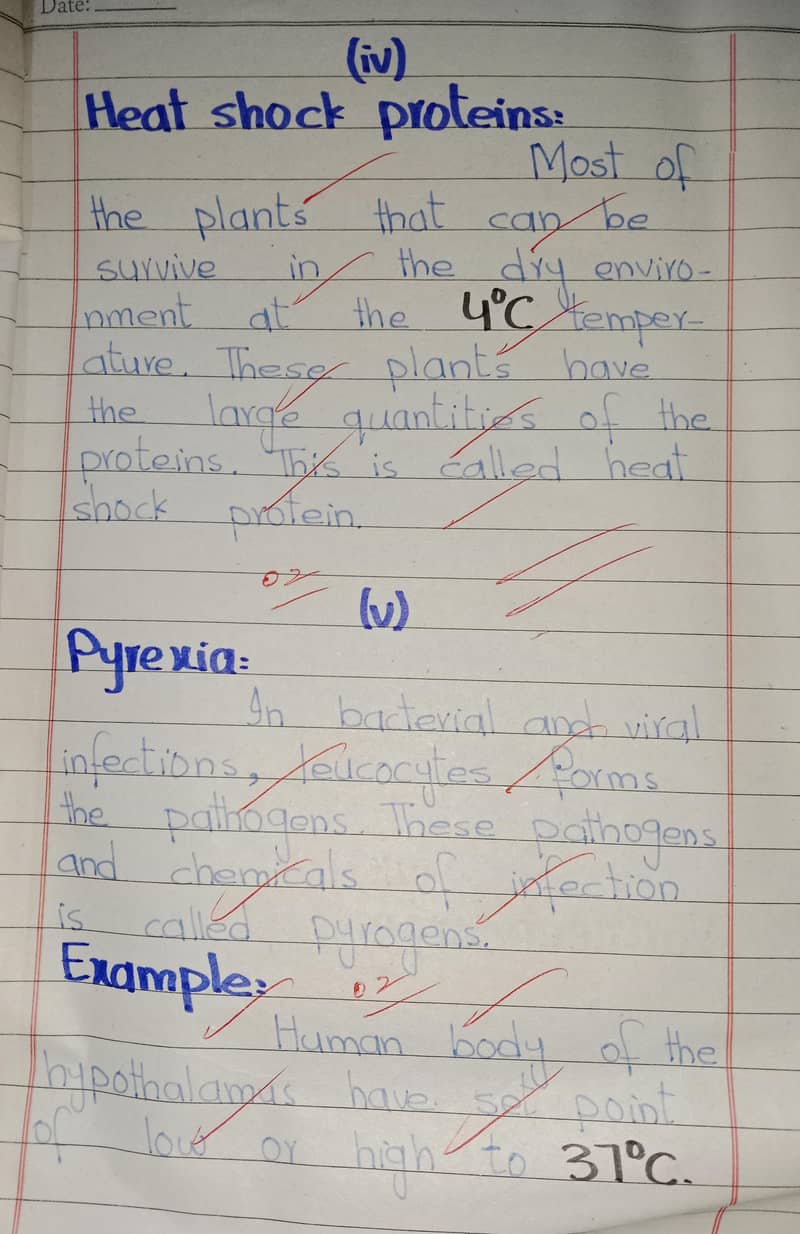 Date:
(iv)
Heat shock proteins:
Most of
the plants that can be
survive in the dry enviro-
nment at the 4°C temper-
ature. These plants have
the large quantities of the
proteins. This is called heat
shock protein.
02
(v)
Pyrexia:
In bacterial and viral
infections, leucocytes forms
the pathogens. These pathogens
and chemicals of infection
is called pyrogens.
Example:
02
Human body of the
hypothalamus have set point
of low or high to 37°C.